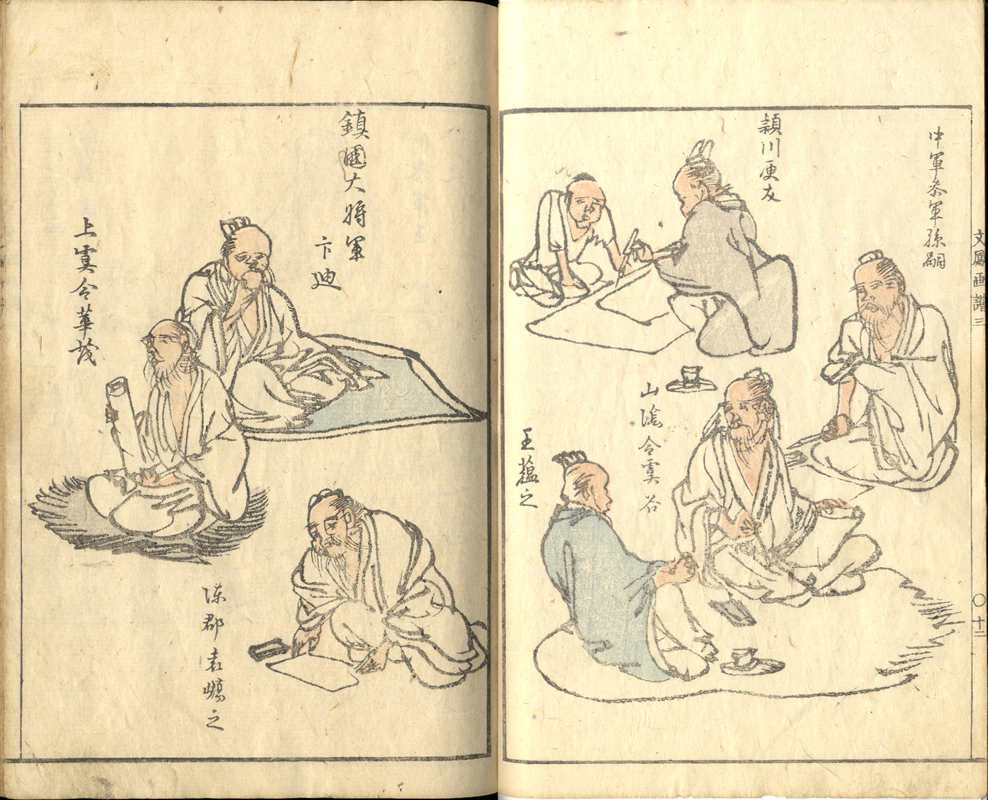 文鳳画譜三
〇十二
中軍参軍孫嗣
頴川庾友
山陰令虞谷
王蘊之
鎮國大将軍
卞迪
上虞令華茂
陳郡袁嶠之